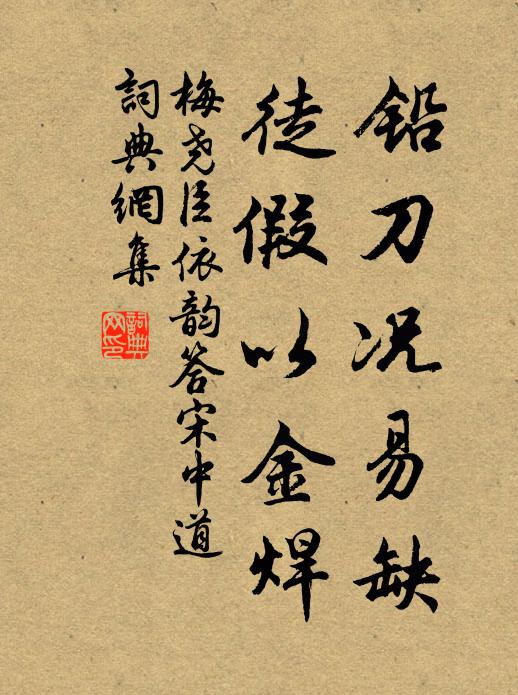 铅刀况易缺
徒假以金焊
梅尧臣依韵答宋中道
詞典網集
詞典網印